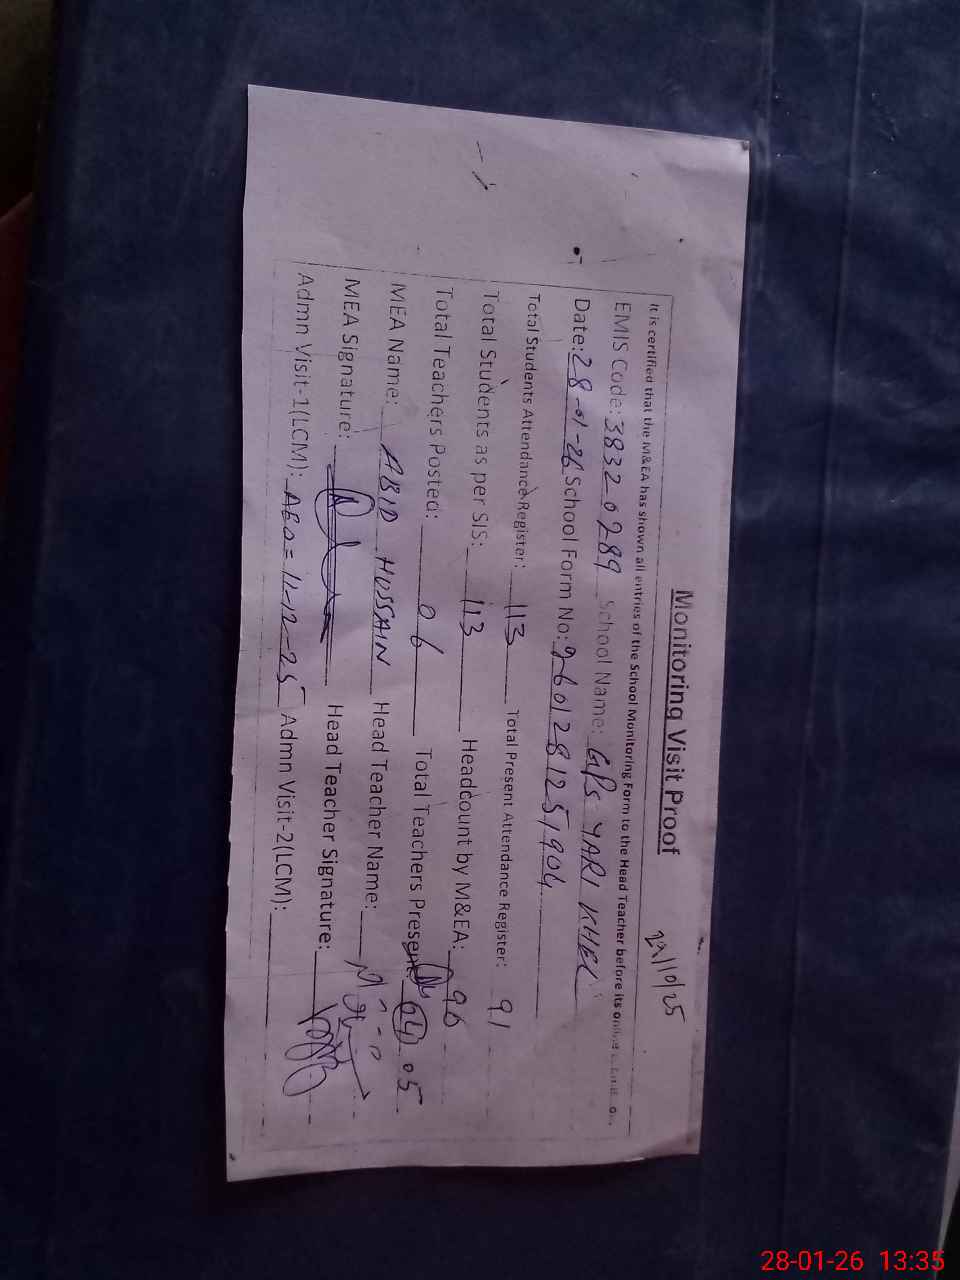 Monitoring Visit Proof
29/10/25
It is certified that the M&EA has shown all entries of the School Monitoring Form to the Head Teacher before its online
EMIS Code: 38320289 School Name: GPS YARI KHEL
Date: 28-01-26 School Form No: 9601281251904
Total Students Attendance Register: 113 Total Present Attendance Register: 91
Total Students as per SIS: 113 Headcount by M&EA: 96
Total Teachers Posted: 06 Total Teachers Present: 04 05
MEA Name: ABID HUSSAIN Head Teacher Name:
MEA Signature: Head Teacher Signature:
Admn Visit-1(LCM): AEO = 11-12-25 Admn Visit-2(LCM):
28-01-26 13:35